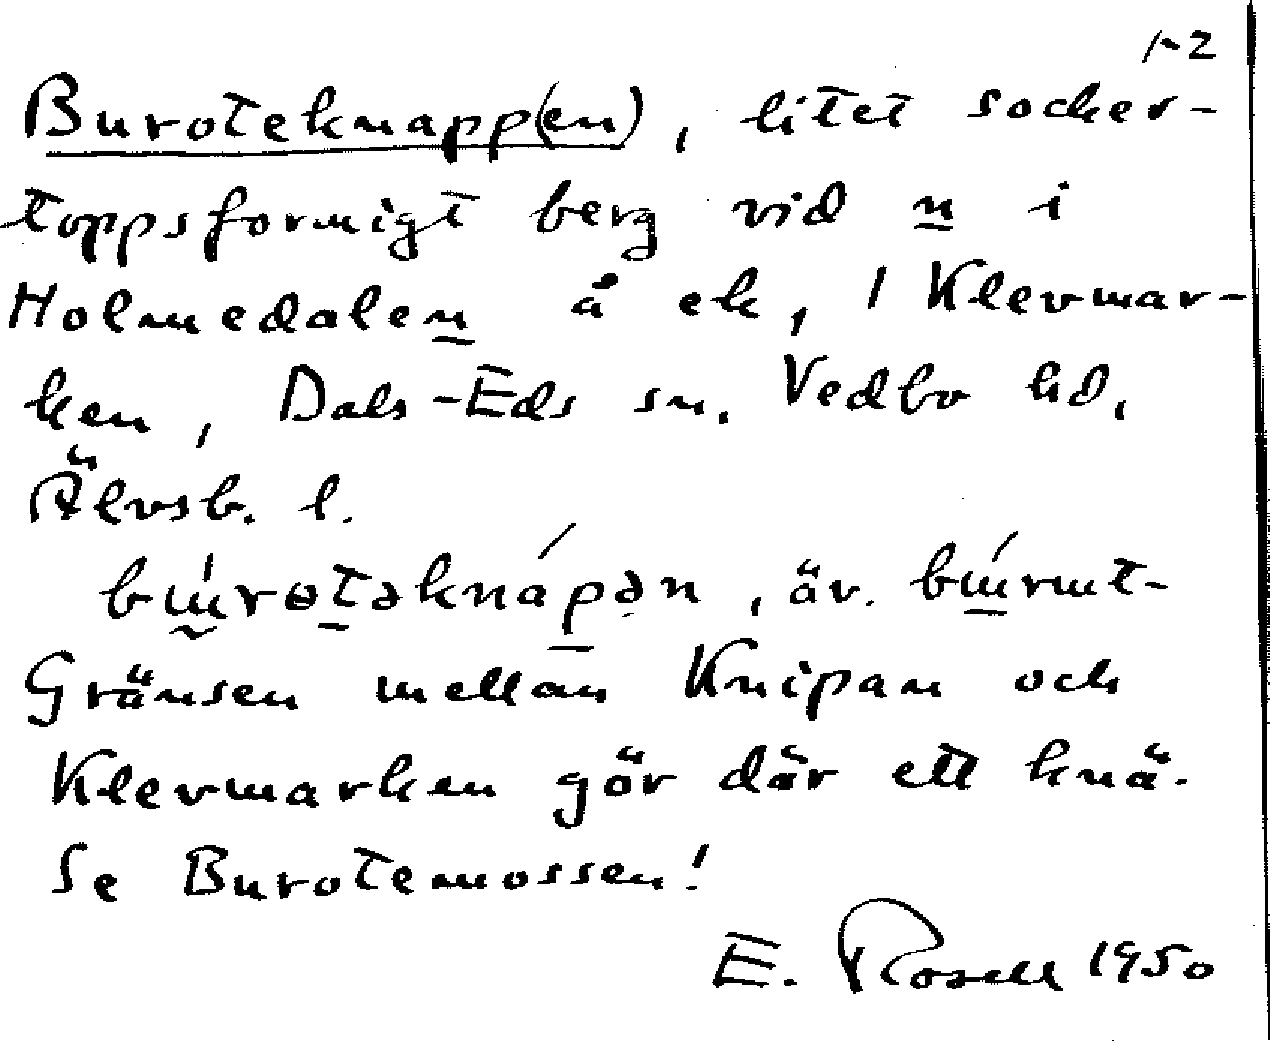 1-2
Buroteknapp(en), litet socker-
toppsformigt berg vid n i
Holmedalen å ek, 1 Klevmar-
ken, Dals-Eds sn. Vedbo hd,
Älvsb. l.
äv.
Gränsen mellan Knipan och
Klevmarken gör där ett knä.
Se Burotemossen!
E. Rosell 1950